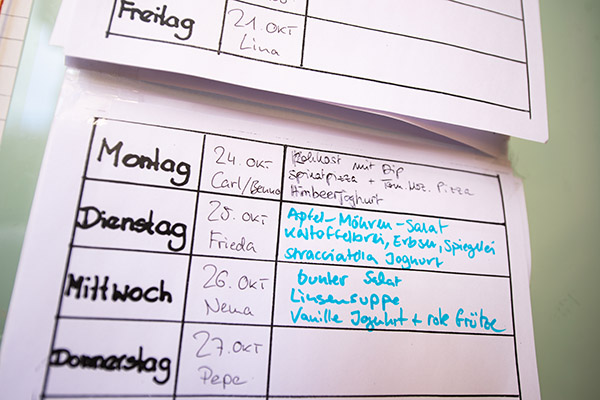 Freitag
21. OKT
Lina
Montag
24. OKT
Carl/Benno
Rohkost mit Dip
Spinatpizza + Tom. Moz. Pizza
Himbeerjoghurt
Dienstag
25. OKT
Frieda
Apfel-Möhren-Salat
Kartoffelbrei, Erbsen, Spiegelei
Stracciatella Joghurt
Mittwoch
26. OKT
Nema
bunter Salat
Linsensuppe
Vanille Joguhrt + rote Grütze
Donnerstag
27. OKT
Pepe